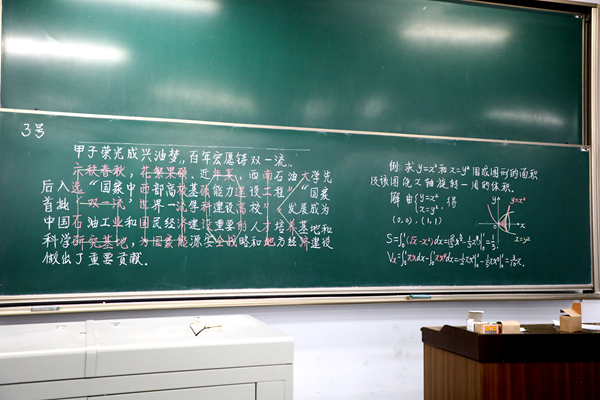 3号
甲子荣光成兴油梦,百年宏愿铸双一流。
六秩春秋,花繁果硕,近年来,西南石油大学先
后入选“国家中西部高校基础能力建设工程”“国家
首批‘双一流’世界一流学科建设高校”,发展成为
中国石油工业和国民经济建设重要的人才培养基地和
科学研究基地,为国家能源安全战略和地方经济建设
做出了重要贡献。
例:求y=x²和x=y²围成图形的面积
及该图绕x轴旋转一周的体积.
解:由{y=x² x=y², 得
(0,0),(1,1)
y
y=x²
x
x=y²
S=∫₀¹(√x-x²)dx=
Vₓ=∫₀¹πxdx-∫₀¹πx⁴dx=½πx²|₀¹-⅕πx⁵|₀¹=3/10π.